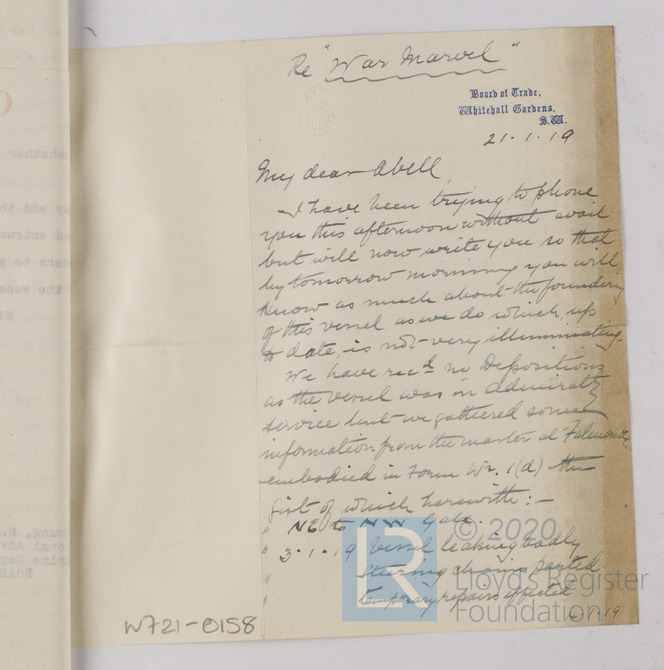 Re "War Marvel"
Board of Trade,
Whitehall Gardens,
S.W.
21.1.19
My dear Abell,
I have been trying to phone
you this afternoon without avail
but will now write you so that
by tomorrow morning you will
know as much about the foundering
of this vessel as we do which, up
to date, is not very illuminating.
We have recd no Depositions
as the vessel was on Admiralty
service but we gathered some
information from the master at Falmouth
embodied in Form Wr. 1(d) the
gist of which herewith:-
" NE to NW Gale.
" 3.1.19 Vessel leaking badly
" Steering chains parted
" temporary repairs effected
1.19
W721-0158
© 2020
LR
Lloyd's Register
Foundation
whether
y add th
ed entrus
ears to a
the vess
oung, E.
onal Adv
rine Dep
BOAR